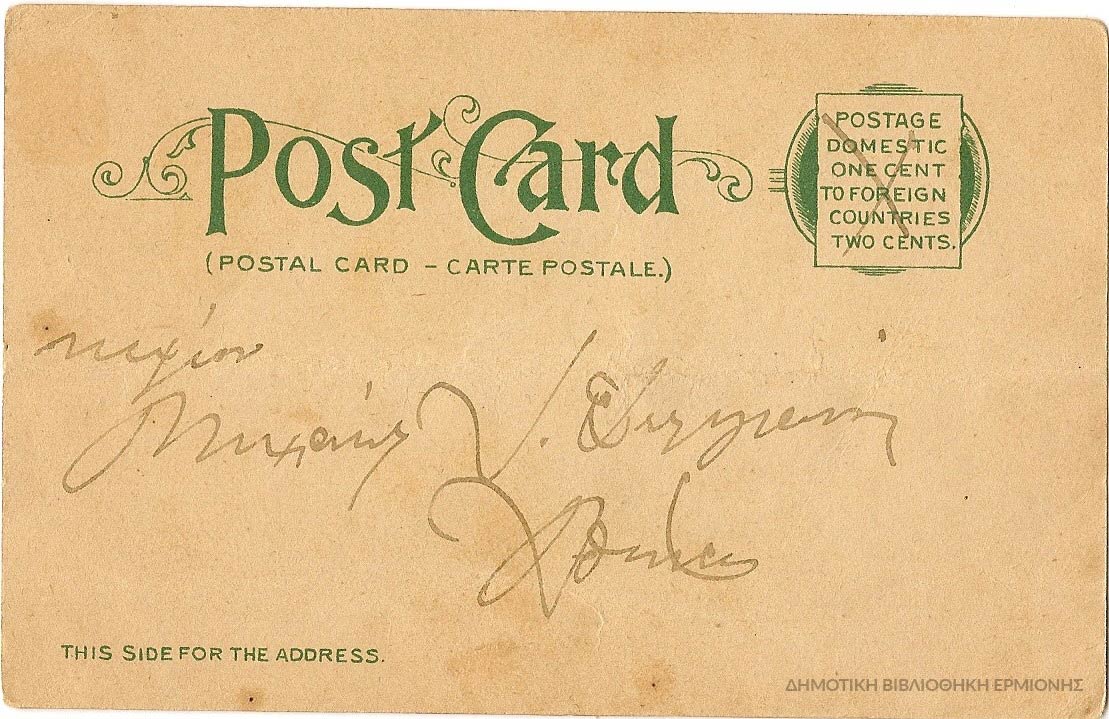 Post Card
(POSTAL CARD – CARTE POSTALE.)
POSTAGE
DOMESTIC
ONE CENT
TO FOREIGN
COUNTRIES
TWO CENTS.
κύριον
Μιχαήλ
Αθήνας
THIS SIDE FOR THE ADDRESS.
ΔΗΜΟΤΙΚΗ ΒΙΒΛΙΟΘΗΚΗ ΕΡΜΙΟΝΗΣ